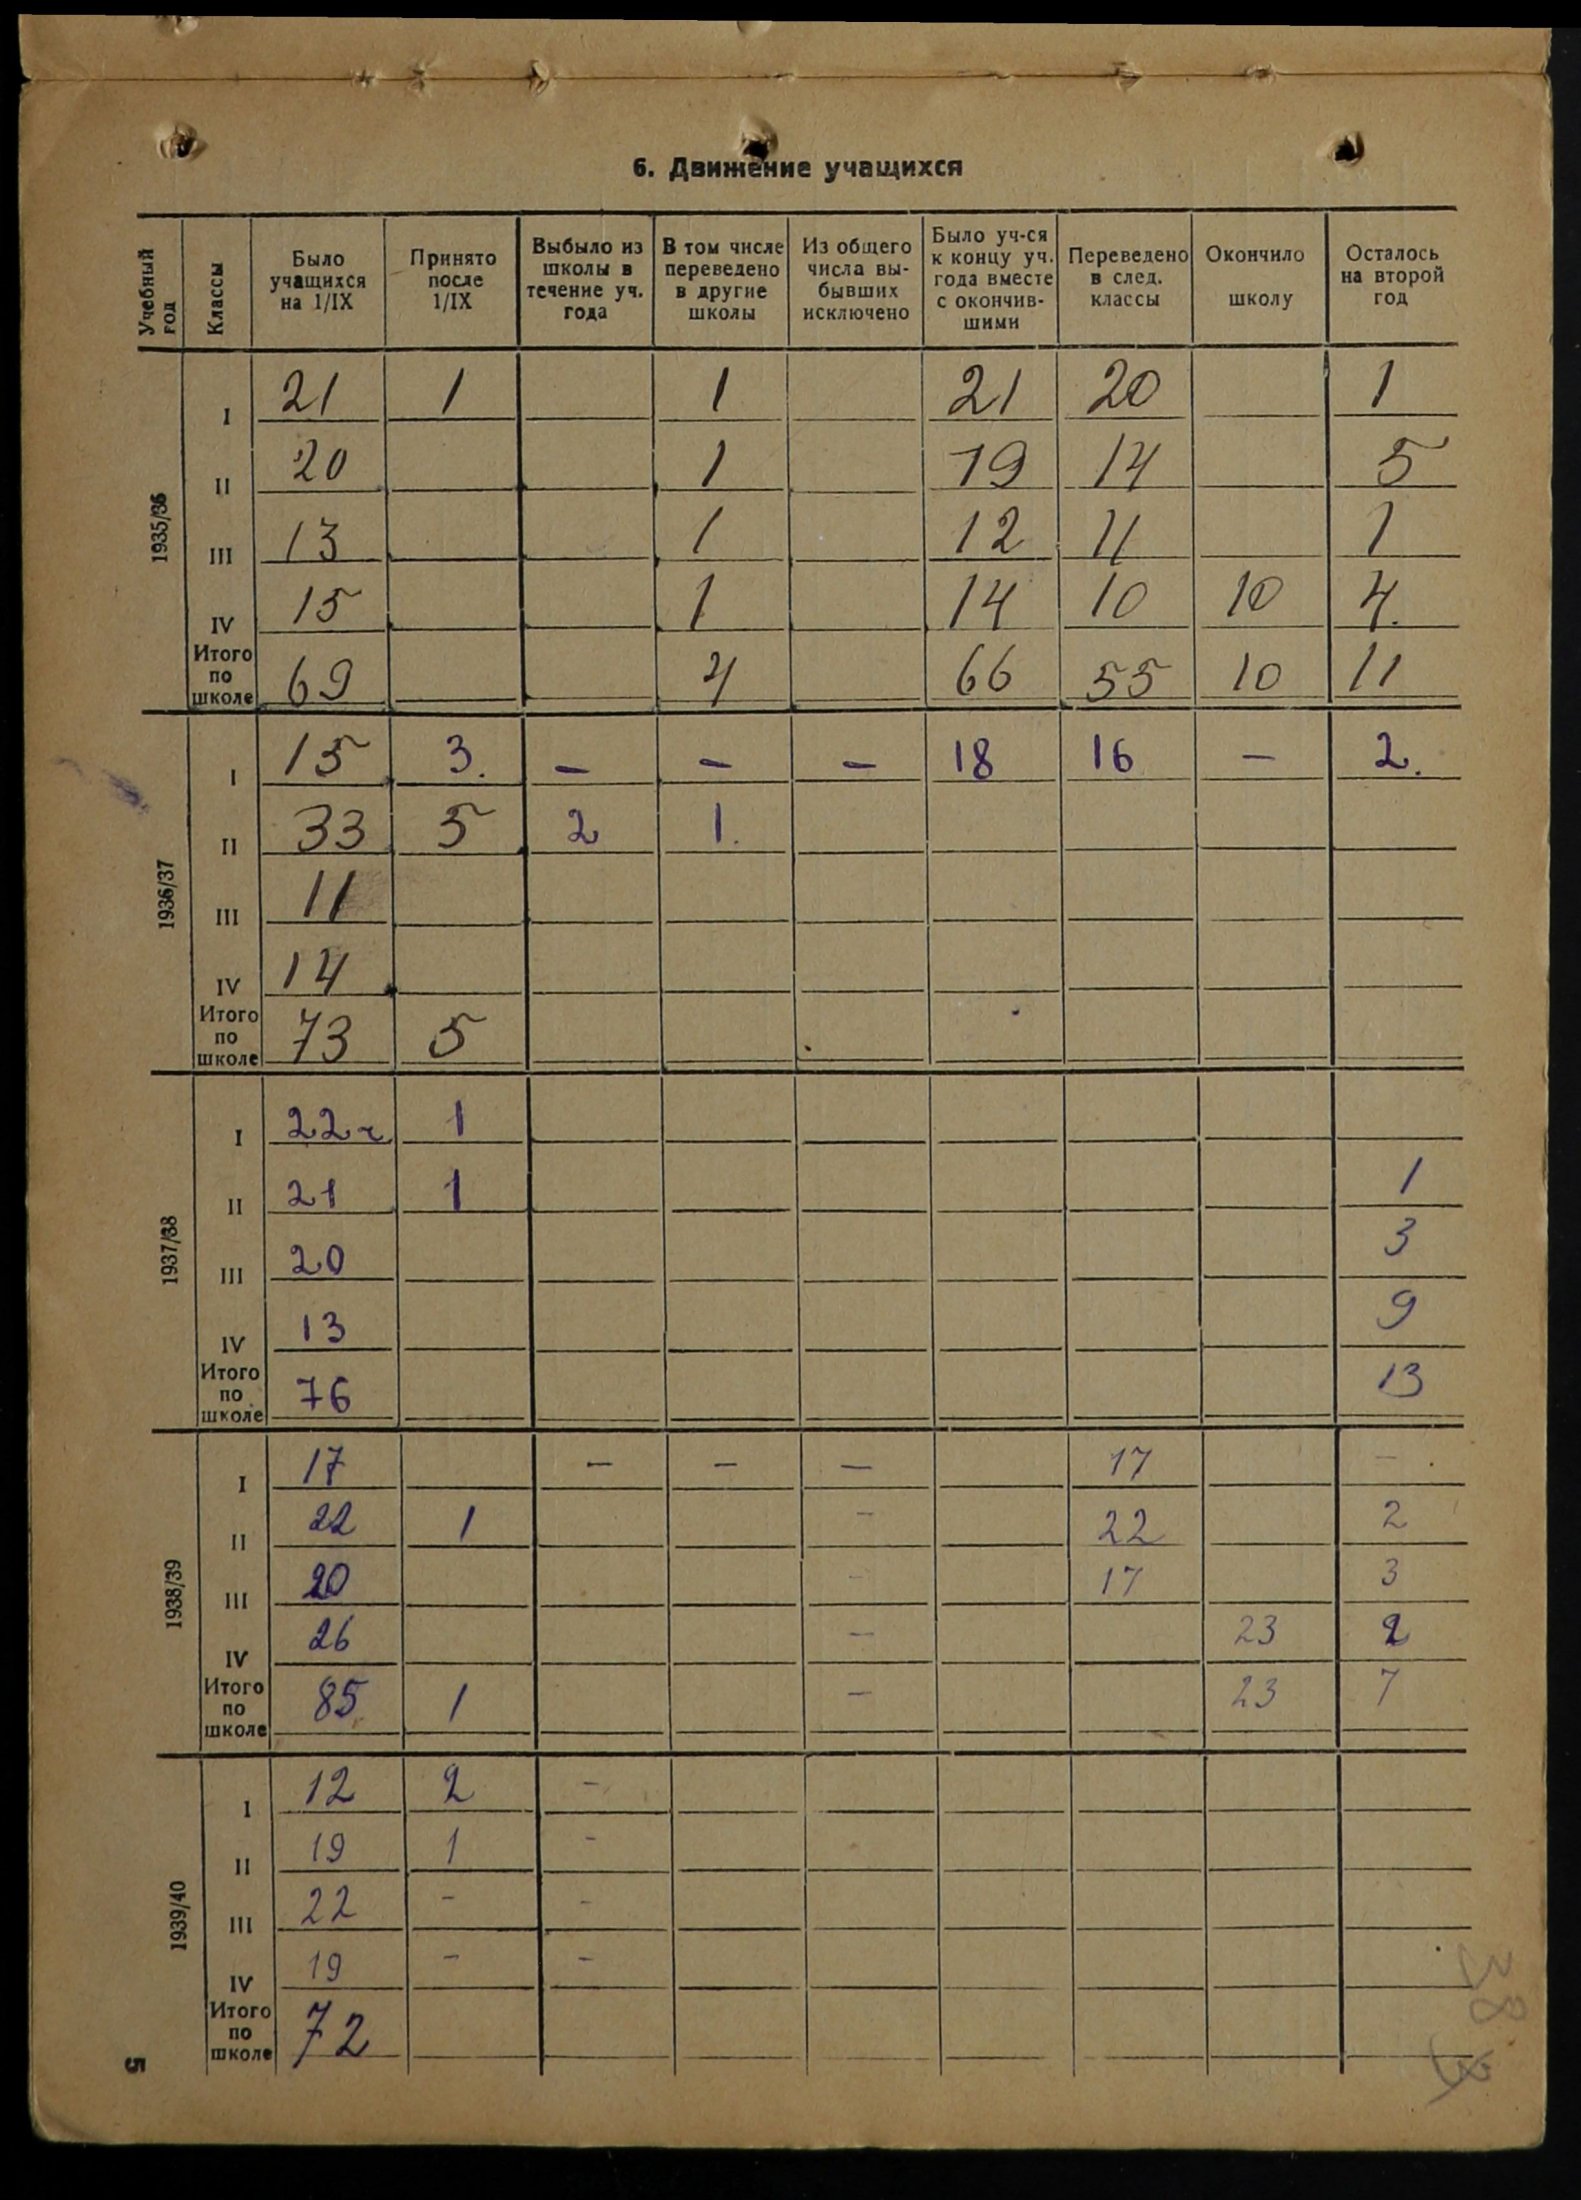 6. Движение учащихся
Учебный год | Классы | Было учащихся на 1/IX | Принято после 1/IX | Выбыло из школы в течение уч. года | В том числе переведено в другие школы | Из общего числа выбывших исключено | Было уч-ся к концу уч. года вместе с окончившими | Переведено в след. классы | Окончило школу | Осталось на второй год
1935/36
I 21 1 1 21 20 1
II 20 1 19 14 5
III 13 1 12 11 1
IV 15 1 14 10 10 4.
Итого по школе 69 4 66 55 10 11
1936/37
I 15 3. — — — 18 16 — 2.
II 33 5 2 1.
III 11
IV 14
Итого по школе 73 5
1937/38
I 22 1
II 21 1 1
III 20 3
IV 13 9
Итого по школе 76 13
1938/39
I 17 — — — 17 —
II 22 1 — 22 2
III 20 — 17 3
IV 26 — 23 2
Итого по школе 85 1 — 23 7
1939/40
I 12 2 —
II 19 1 —
III 22 — —
IV 19 — —
Итого по школе 72
5
38